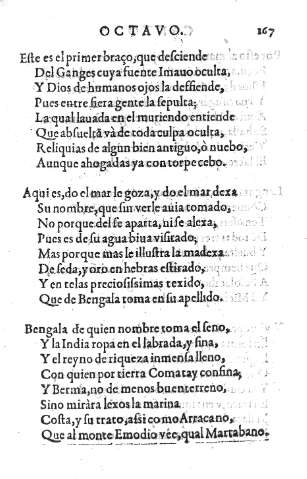 OCTAVO. 167
Este es el primer braço, que desciende
Del Ganges cuya fuente Imauo oculta,
Y Dios de humanos ojos la deffiende,
Pues entre fiera gente la sepulta;
La qual lauada en el muriendo entiende
Que absuelta và de toda culpa oculta,
Reliquias de algun bien antiguo, ò nuebo,
Aunque ahogadas ya con torpe cebo.
Aqui es, do el mar le goza, y do el mar dexa
Su nombre, que sin verle auia tomado,
No porque del se aparta, ni se alexa,
Pues es de su agua biua visitado;
Mas porque mas le illustra la madexa
De seda, y oro en hebras estirado,
Y en telas preciosissimas texido,
Que de Bengala toma en su apellido.
Bengala de quien nombre toma el seno,
Y la India ropa en el labrada, y fina,
Y el reyno de riqueza inmensa lleno,
Con quien por tierra Comatay confina;
Y Berma, no de menos buen terreno,
Sino miràra lexos la marina
Costa, y su trato, assi como Arracano,
Que al monte Emodio vée, qual Martabano.